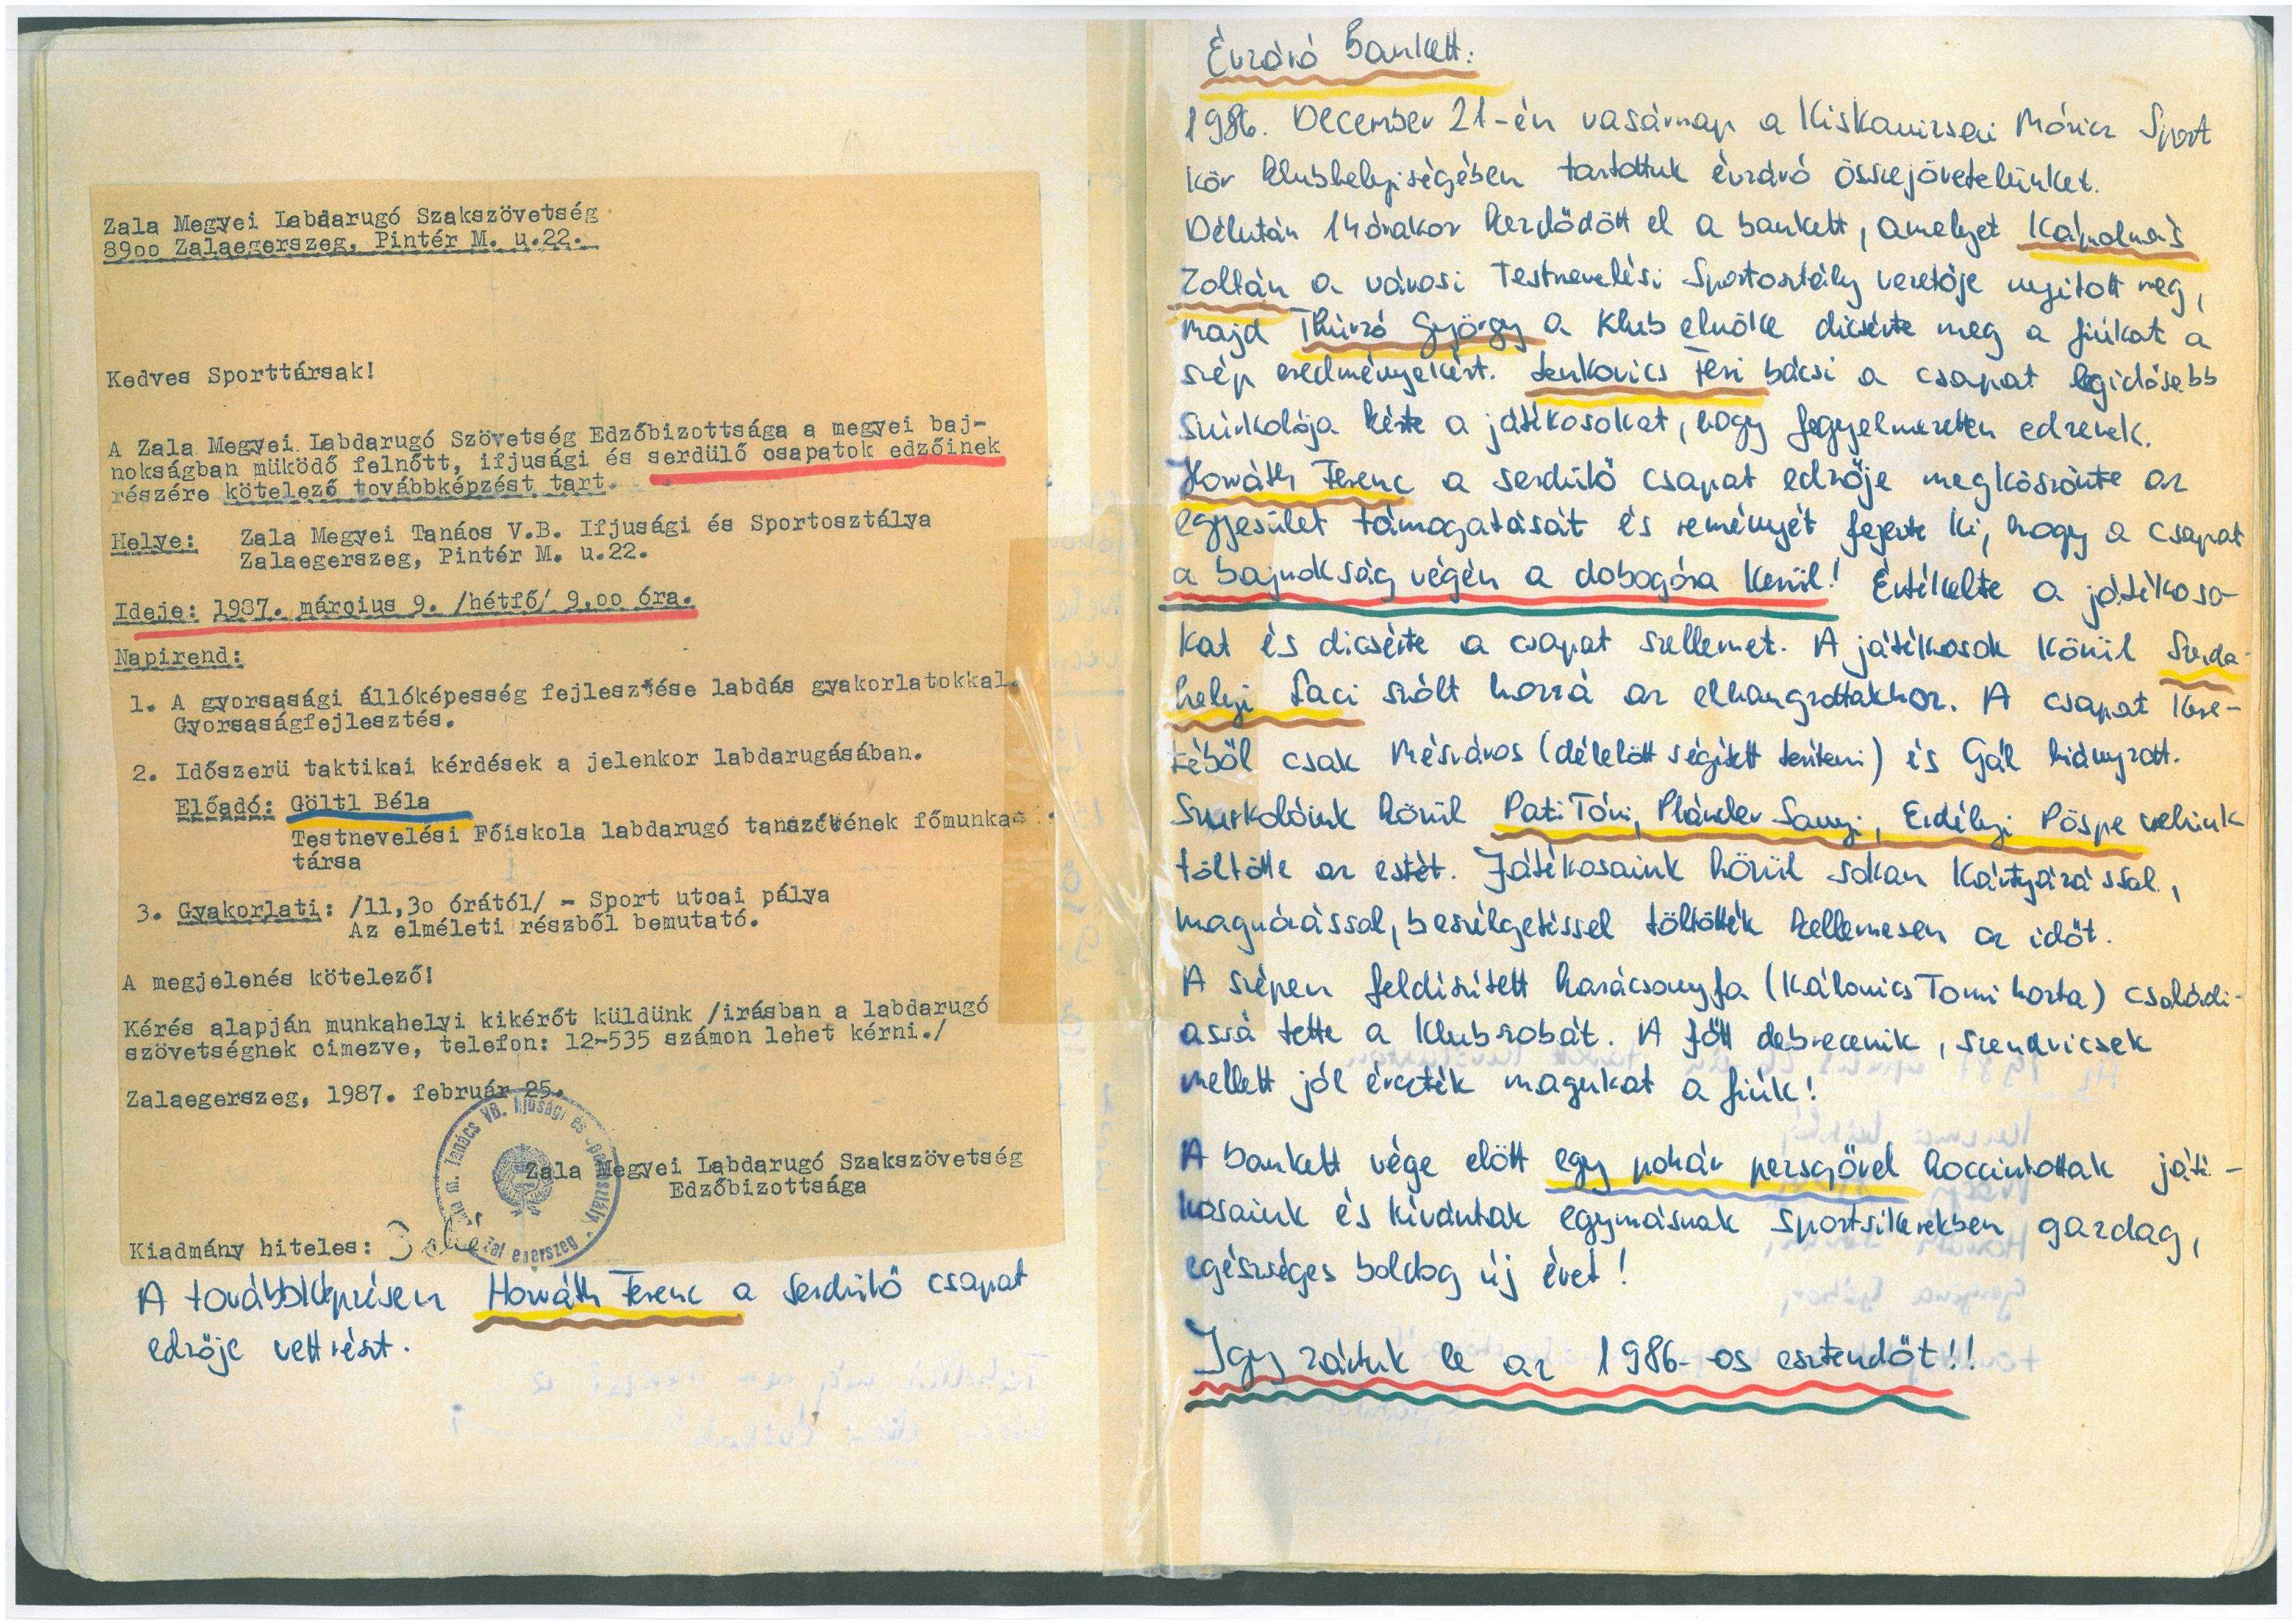 Zala Megyei Labdarugó Szakszövetség
8900 Zalaegerszeg, Pintér M. u.22.
Kedves Sporttársak!
A Zala Megyei Labdarugó Szövetség Edzőbizottsága a megyei baj-
nokságban müködő felnőtt, ifjusági és serdülő csapatok edzőinek
részére kötelező továbbképzést tart.
Helye: Zala Megyei Tanács V.B. Ifjusági és Sportosztálya
Zalaegerszeg, Pintér M. u.22.
Ideje: 1987. március 9. /hétfő/ 9,00 óra.
Napirend:
1. A gyorsasági állóképesség fejlesztése labdás gyakorlatokkal.
Gyorsaságfejlesztés.
2. Időszerü taktikai kérdések a jelenkor labdarugásában.
Előadó: Göltl Béla
Testnevelési Főiskola labdarugó tanszékének főmunka-
társa
3. Gyakorlati: /11,30 órától/ - Sport utcai pálya
Az elméleti részből bemutató.
A megjelenés kötelező!
Kérés alapján munkahelyi kikérőt küldünk /irásban a labdarugó
szövetségnek cimezve, telefon: 12-535 számon lehet kérni./
Zalaegerszeg, 1987. február 25.
Zala Megyei Labdarugó Szakszövetség
Edzőbizottsága
Kiadmány hiteles:
Zala m. Tanács VB. Ifjusági és Sportosztály. Zalaegerszeg
A továbbképzésen Horváth Ferenc a serdülő csapat
edzője vett részt.
Évzáró Bankett:
1986. December 21-én vasárnap a Kiskanizsai Móricz Sport
Kör klubhelyiségében tartottuk évzáró összejövetelünket.
Délután 14 órakor kezdődött el a bankett, amelyet Kápolnás
Zoltán a városi Testnevelési Sportosztály vezetője nyitott meg,
majd Thúrzó György a Klub elnöke dicsérte meg a fiúkat a
szép eredményekért. Lenkovics Feri bácsi a csapat legidősebb
szurkolója kérte a játékosokat, hogy fegyelmezetten edzenek.
Horváth Ferenc a serdülő csapat edzője megköszönte az
egyesület támogatását és reményét fejezte ki, hogy a csapat
a bajnokság végén a dobogóra kerül! Értékelte a játékoso-
kat és dicsérte a csapat szellemet. A játékosok közül Szerda-
helyi Laci szólt hozzá az elhangzottakhoz. A csapat kere-
téből csak Mészáros (délelőtt segített teríteni) és Gál hiányzott.
Szurkolóink közül Pati Tóni, Plánder Sanyi, Erdélyi Pöspe velünk
töltötte az estét. Játékosaink közül sokan kártyázással,
magnózással, beszélgetéssel töltötték kellemesen az időt.
A szépen feldíszített karácsonyfa (Kálovics Tomi hozta) családi-
assá tette a klubszobát. A főtt debreceni, szendvicsek
mellett jól érezték magukat a fiúk!
A bankett vége előtt egy pohár pezsgővel koccintottak játé-
kosaink és kívántak egymásnak sportsikerekben gazdag,
egészséges boldog új évet!
Igy zártuk le az 1986-os esztendőt!!